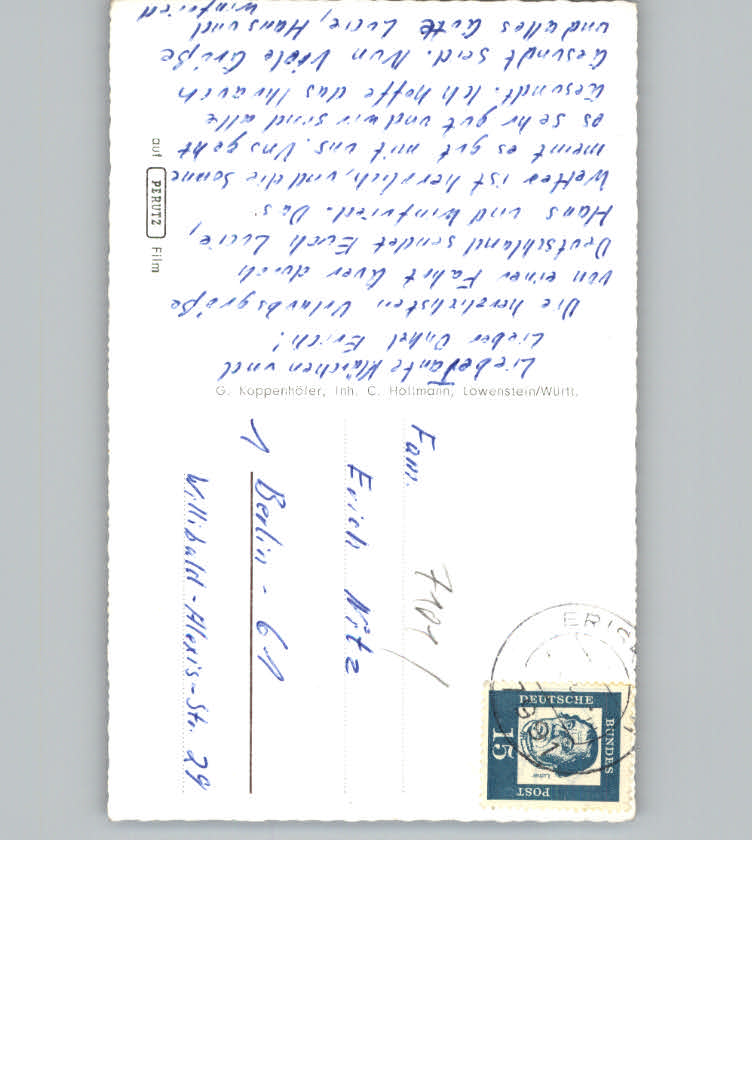 Liebe Tante Klärchen und
Lieber Onkel Erich!
Die herzlichsten Urlaubsgrüße
von einer Fahrt quer durch
Deutschland sendet Euch Lucie,
Hans und Winfried. Das
Wetter ist herrlich, und die Sonne
meint es gut mit uns. Uns geht
es sehr gut und wir sind alle
Gesundt. Ich hoffe das Ihr auch
Gesundt seid. Nun Viele Grüße
und alles Gute Lucie, Hans und
Winfried
G. Koppenhöfer, Inh. C. Hollmann, Löwenstein/Württ.
auf PERUTZ Film
Fam.
Erich Nitz
1 Berlin - 61
Willibald-Alexis-Str. 29
7101
DEUTSCHE
BUNDES
POST
15
Luther